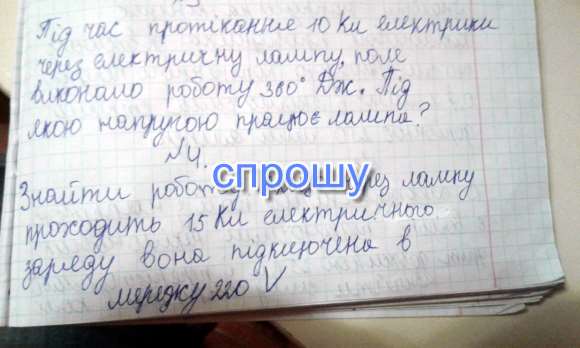 Під час протікання 10 Кл електрики
через електричну лампу, поле
виконало роботу 360° Дж. Під
якою напругою працює лампа?
№4.
спрошу
Знайти роботу через лампу
проходить 15 Кл електричного
заряду вона підключена в
мережу 220 V